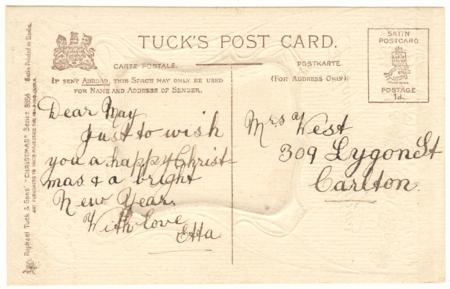 TUCK'S POST CARD.
CARTE POSTALE. POSTKARTE.
IF SENT ABROAD, THIS SPACE MAY ONLY BE USED
FOR NAME AND ADDRESS OF SENDER.
(FOR ADDRESS ONLY)
SATIN
POSTCARD
POSTAGE
1d.
Dear May
Just to wish
you a happy Christ
mas & a bright
New Year.
With love
Etta
Mrs West
309 Lygon St
Carlton
Raphael Tuck & Sons' "CHRISTMAS" Series